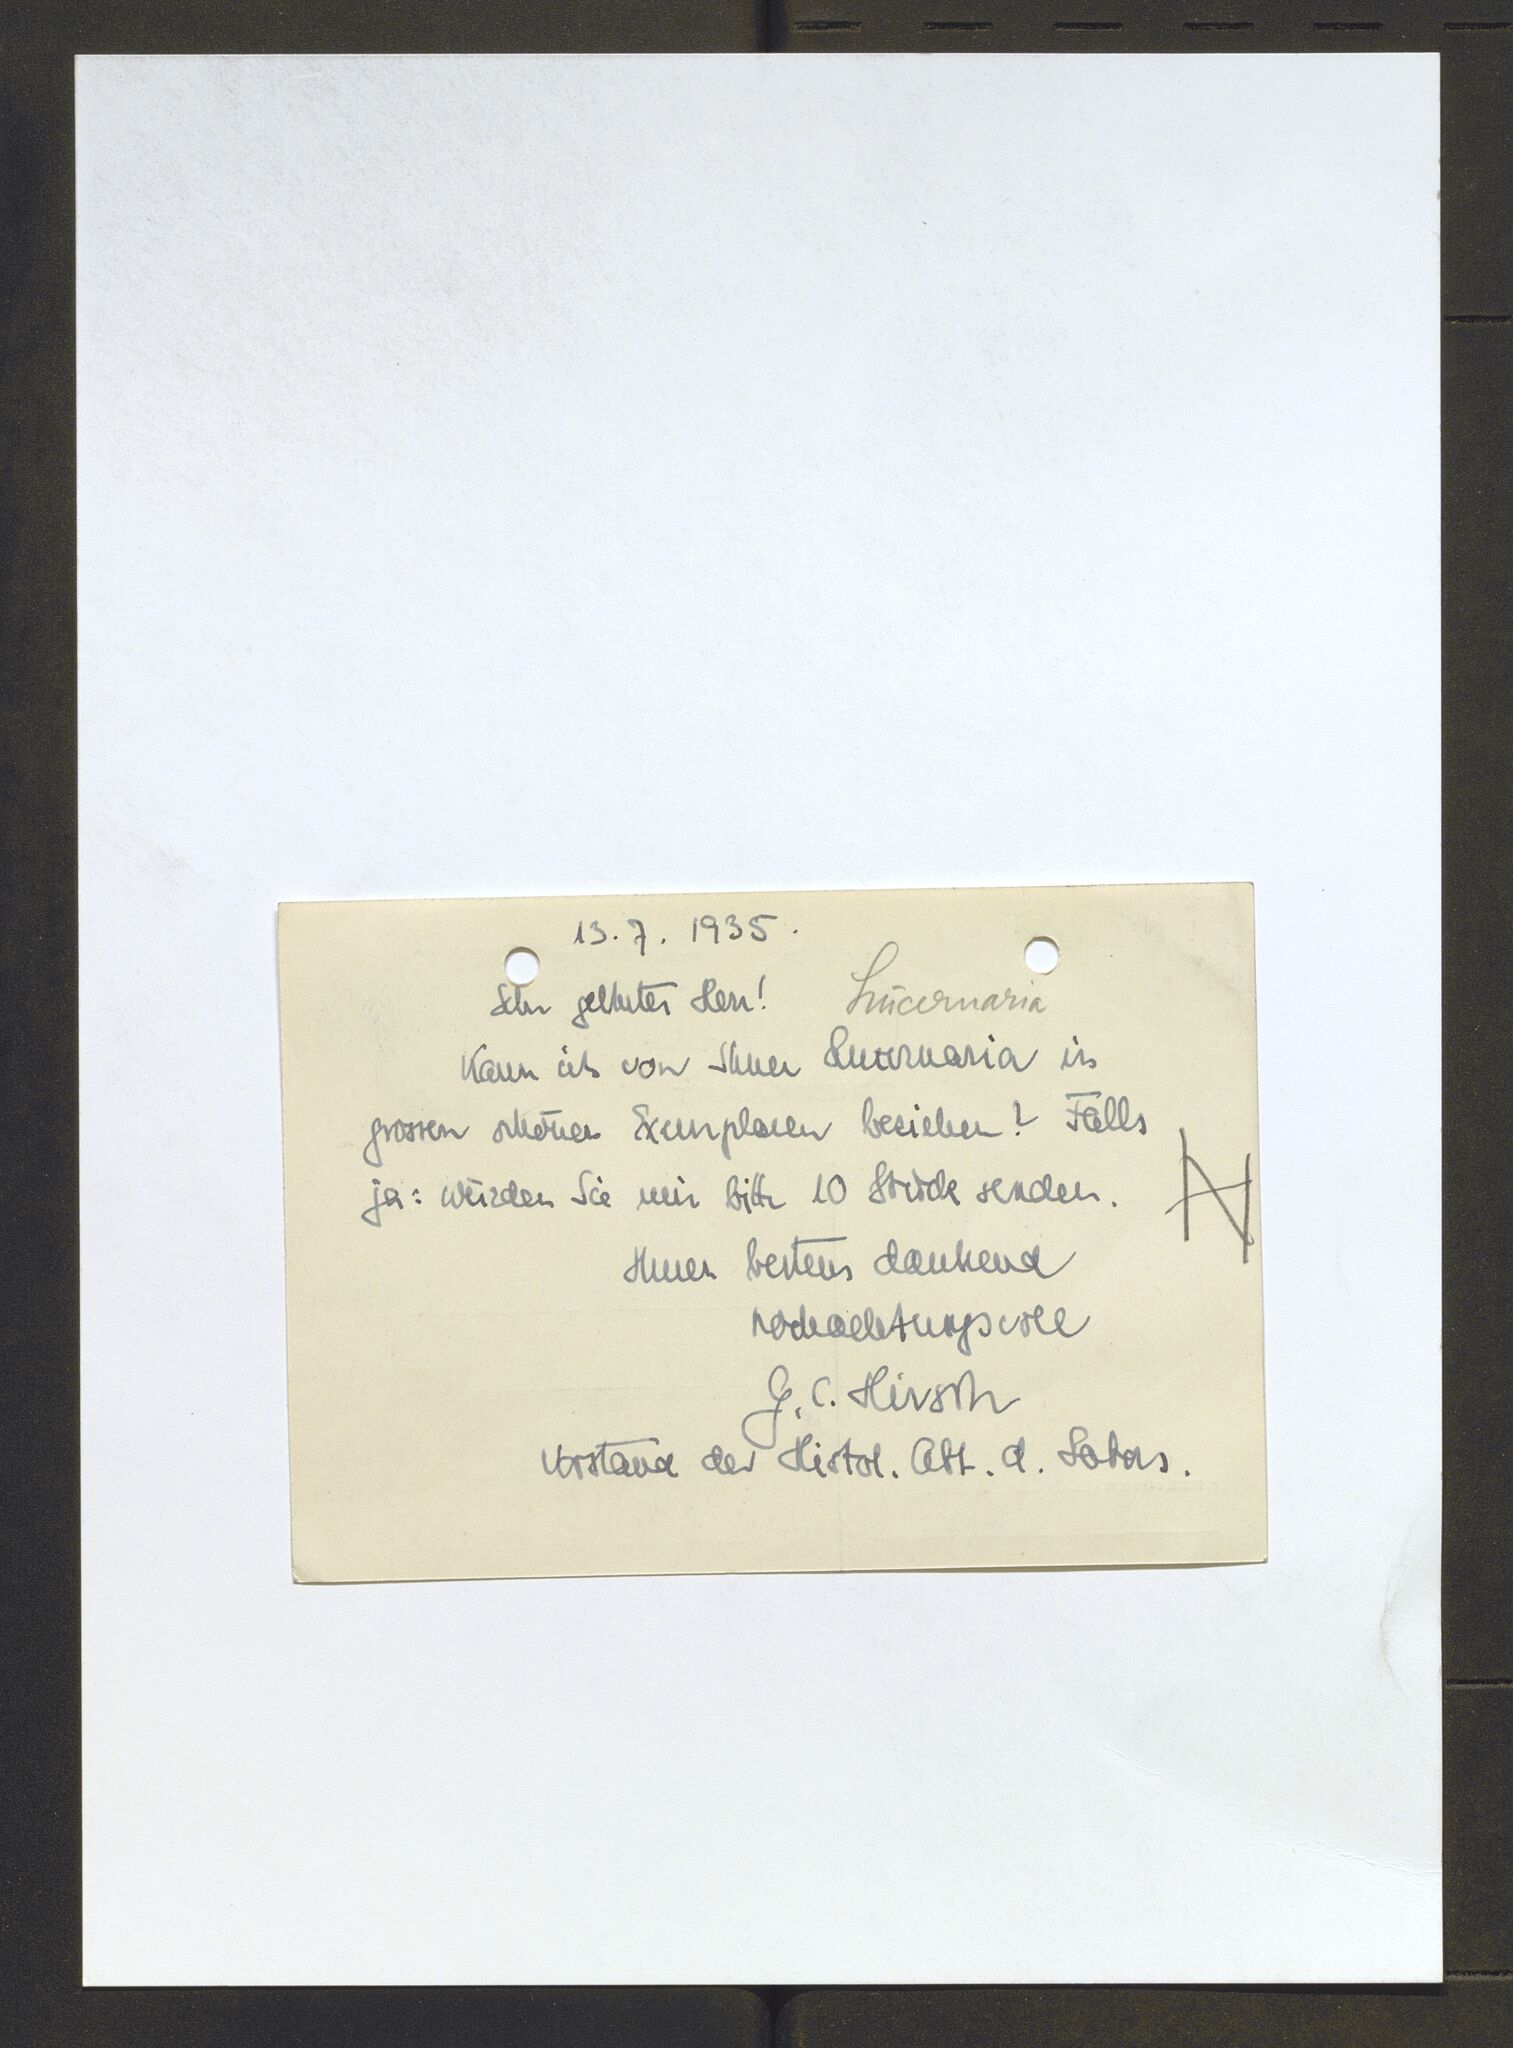 13. 7. 1935.
Sehr geehrter Herr!
Lucernaria
Kann ich von Ihnen Lucernaria in
grossen schönen Exemplaren beziehen? Falls
ja: würden Sie mir bitte 10 Stück senden.
Ihnen bestens dankend
hochachtungsvoll
G. C. Hirsch
Vorstand der Histol. Abt. d. Labors.